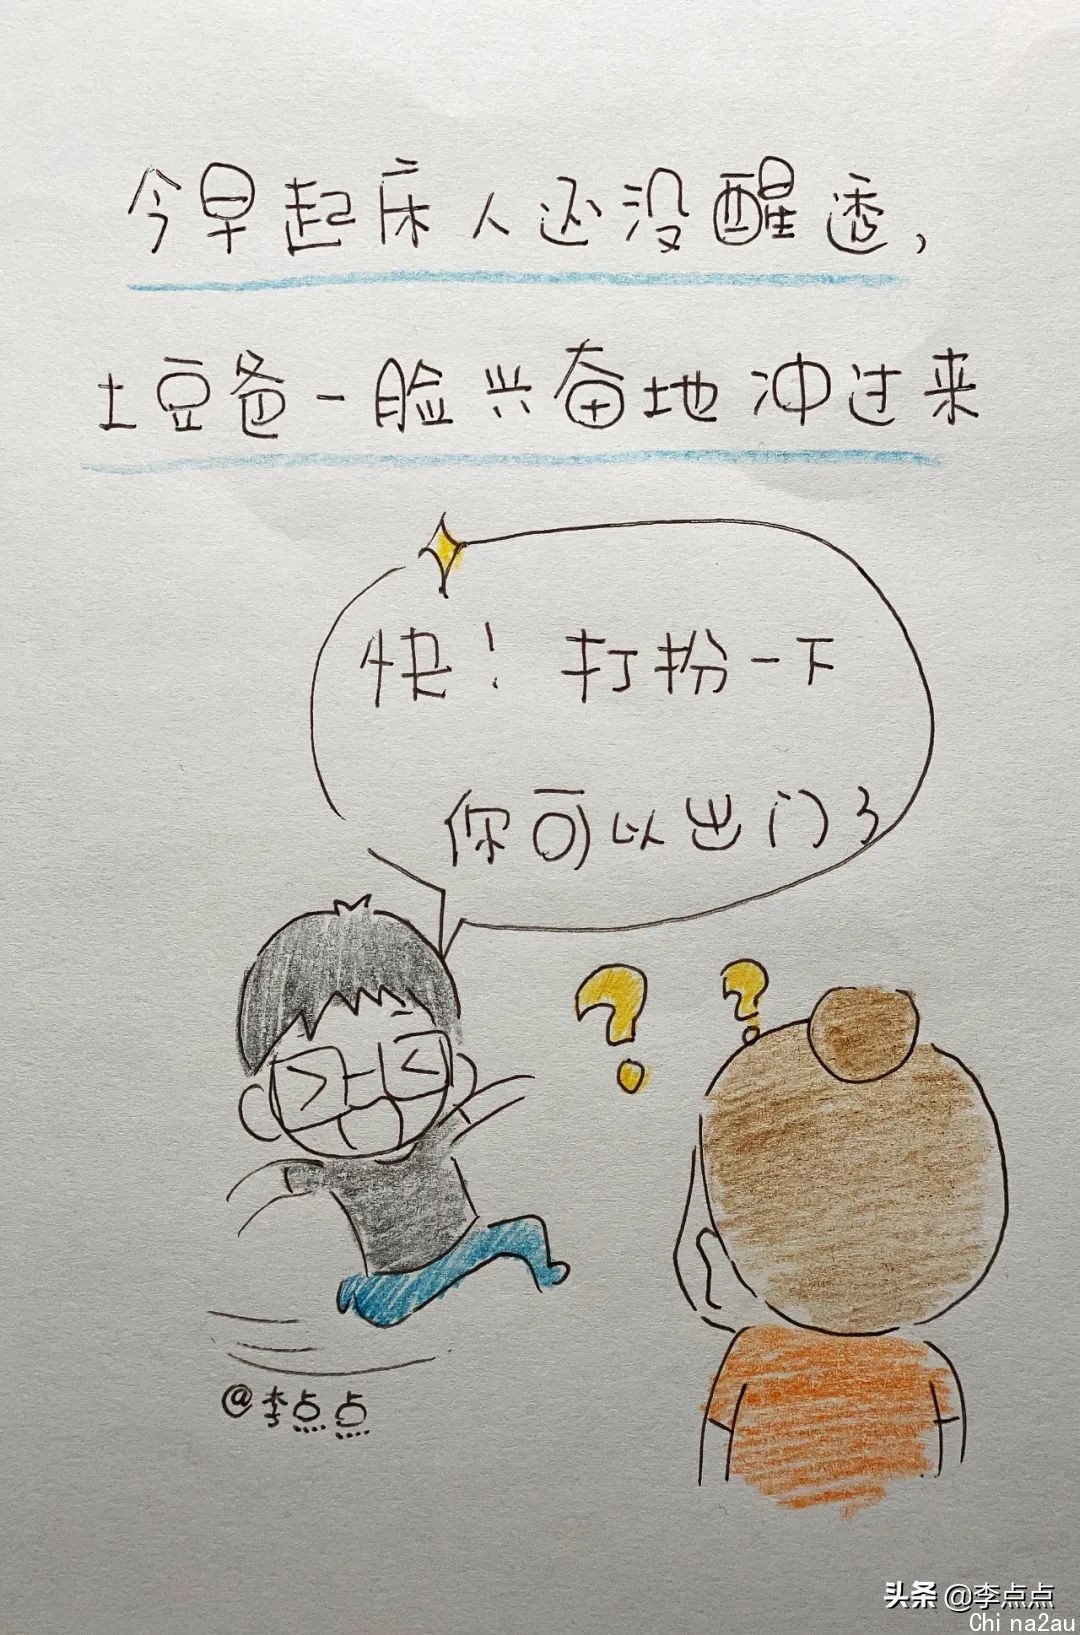 今早起床人还没醒透,
土豆爸一脸兴奋地冲过来
快! 打扮一下
你可以出门了
? ?
@李点点
头条 @李点点
Chi na2au